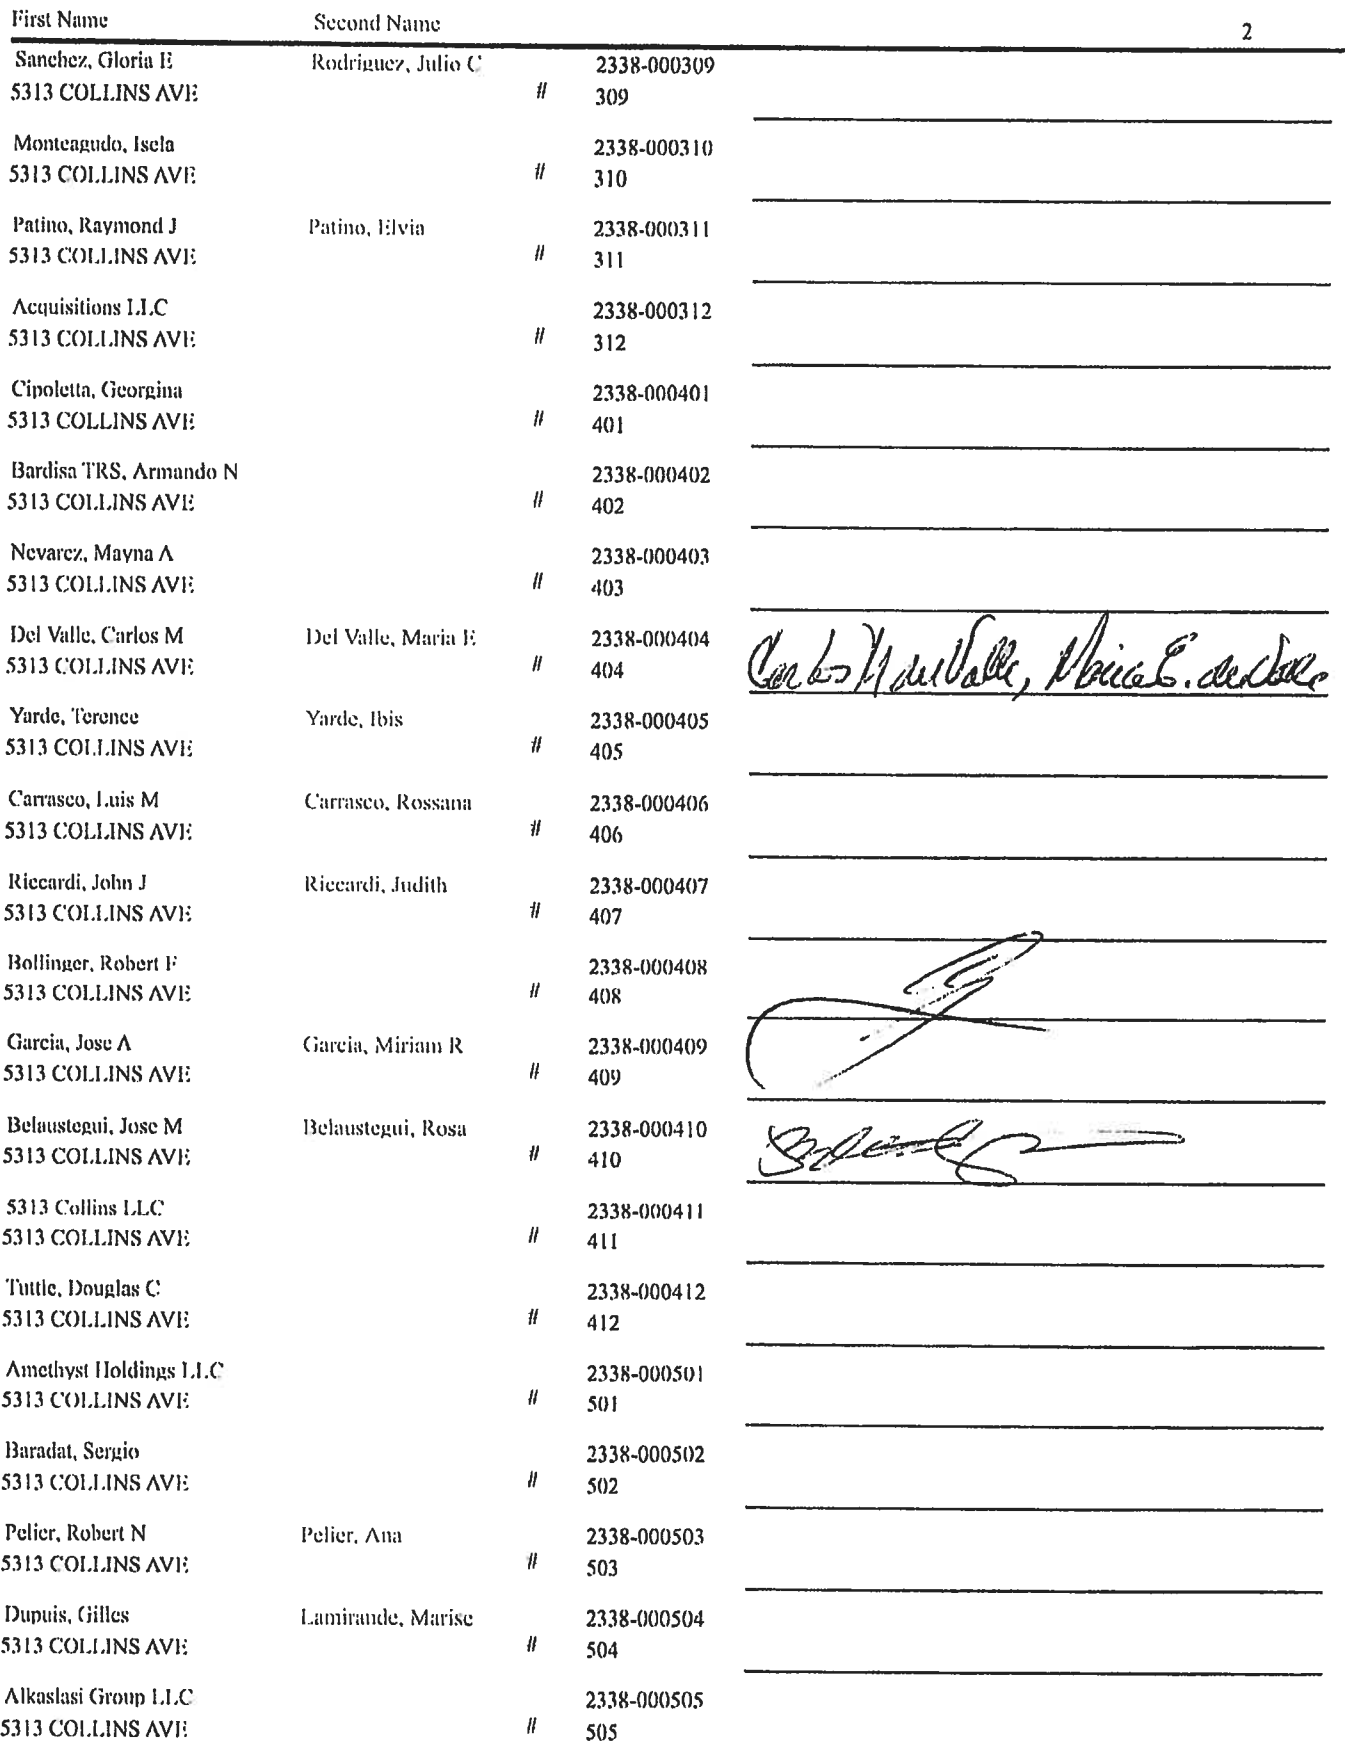 First Name Second Name 2
Sanchez, Gloria E Rodriguez, Julio C 2338-000309
5313 COLLINS AVE # 309
Monteagudo, Isela 2338-000310
5313 COLLINS AVE # 310
Patino, Raymond J Patino, Elvia 2338-000311
5313 COLLINS AVE # 311
Acquisitions LLC 2338-000312
5313 COLLINS AVE # 312
Cipoletta, Georgina 2338-000401
5313 COLLINS AVE # 401
Bardisa TRS, Armando N 2338-000402
5313 COLLINS AVE # 402
Nevarez, Mayna A 2338-000403
5313 COLLINS AVE # 403
Del Valle, Carlos M Del Valle, Maria E 2338-000404
5313 COLLINS AVE # 404 Carlos M del Valle, Maria E. del Valle
Yarde, Terence Yarde, Ibis 2338-000405
5313 COLLINS AVE # 405
Carrasco, Luis M Carrasco, Rossana 2338-000406
5313 COLLINS AVE # 406
Riccardi, John J Riccardi, Judith 2338-000407
5313 COLLINS AVE # 407
Bollinger, Robert F 2338-000408
5313 COLLINS AVE # 408
Garcia, Jose A Garcia, Miriam R 2338-000409
5313 COLLINS AVE # 409
Belaustegui, Jose M Belaustegui, Rosa 2338-000410
5313 COLLINS AVE # 410
5313 Collins LLC 2338-000411
5313 COLLINS AVE # 411
Tuttle, Douglas C 2338-000412
5313 COLLINS AVE # 412
Amethyst Holdings LLC 2338-000501
5313 COLLINS AVE # 501
Baradat, Sergio 2338-000502
5313 COLLINS AVE # 502
Pelier, Robert N Pelier, Ana 2338-000503
5313 COLLINS AVE # 503
Dupuis, Gilles Lamirande, Marise 2338-000504
5313 COLLINS AVE # 504
Alkaslasi Group LLC 2338-000505
5313 COLLINS AVE # 505